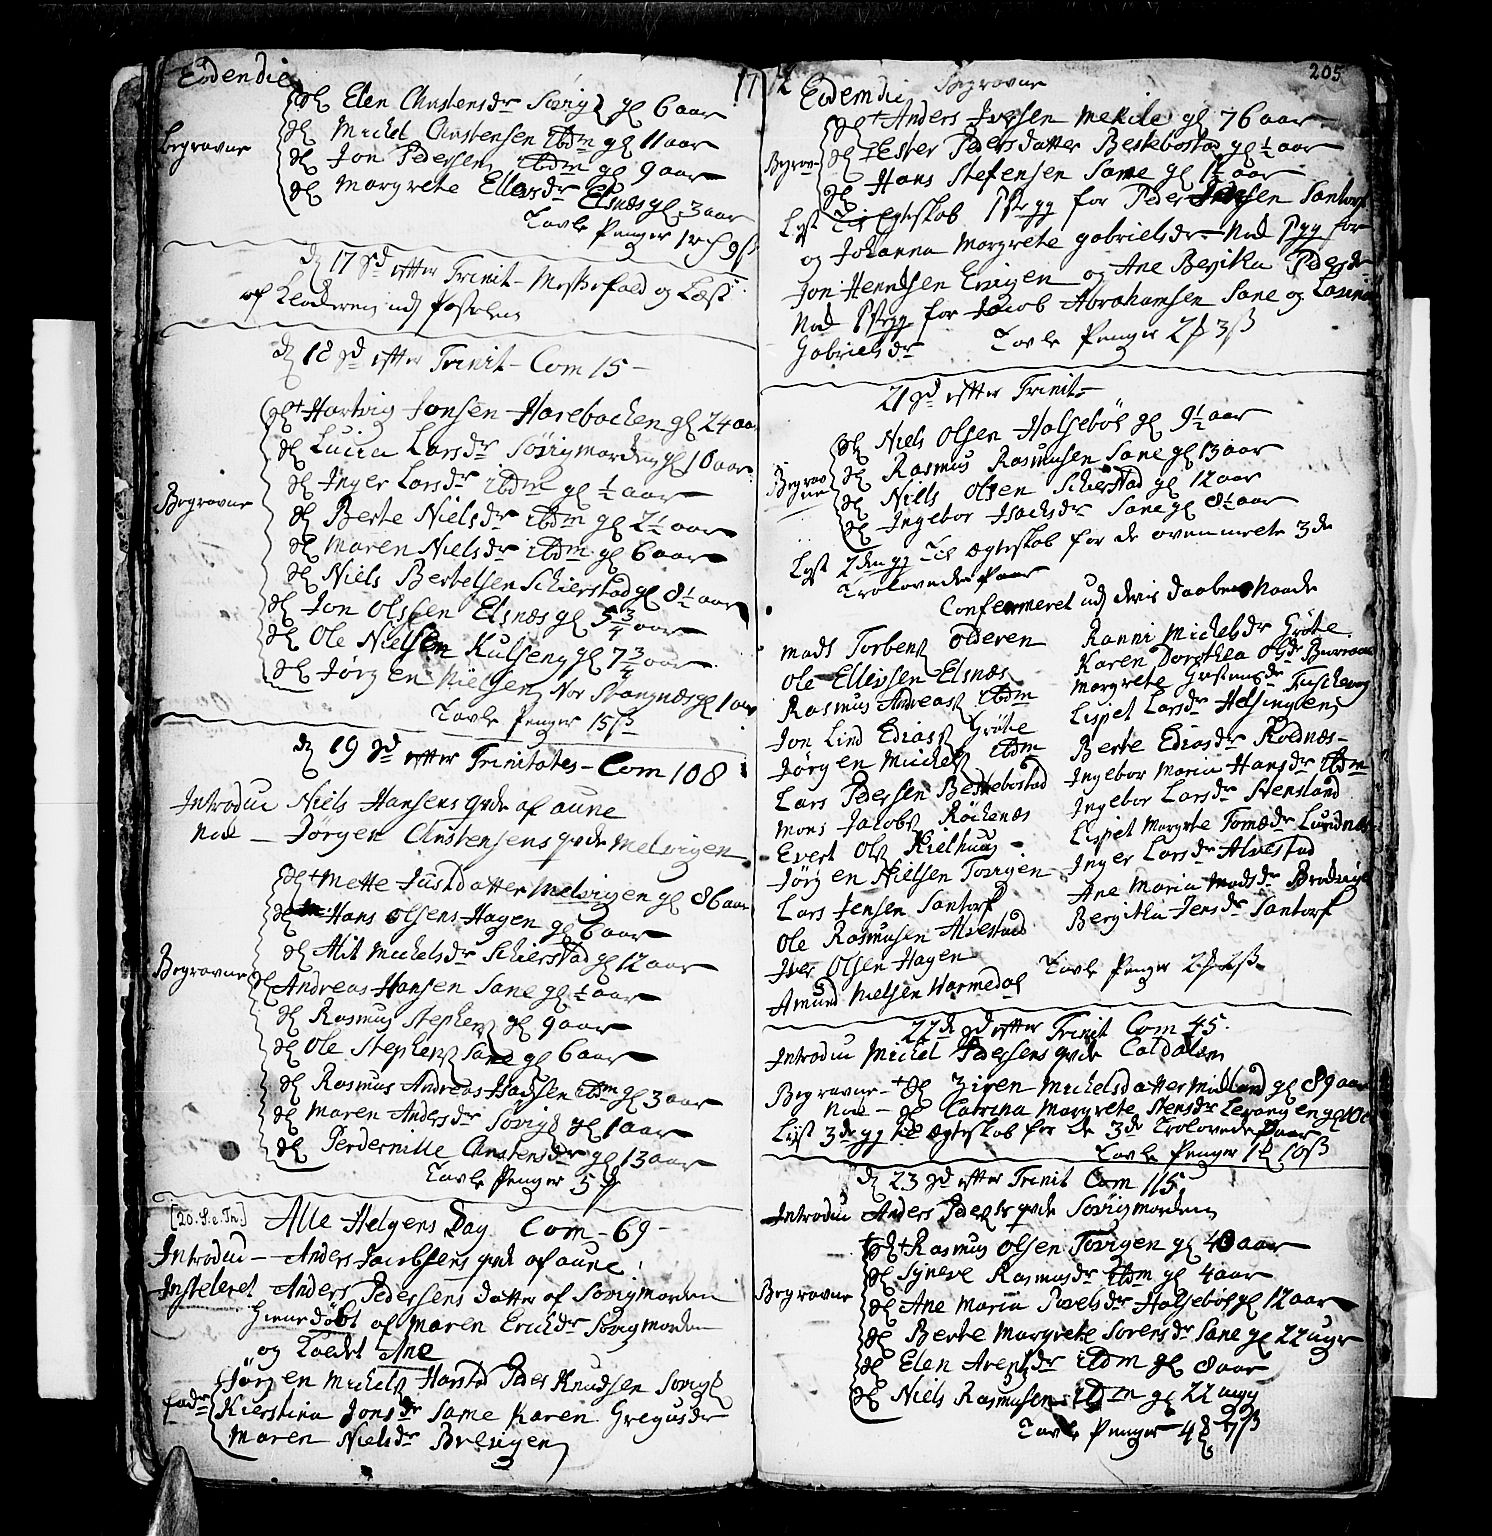 Eidemdie
1772
205
Begravne
dℓ Elen Christensdr Sørvig gℓ 6 aar
dℓ Mickel Christensen ibdm gℓ 11 aar
dℓ Jon Pedersen ibdm gℓ 9 aar
dℓ Margrete Ellersdr Elsnæs gℓ 3 aar
Tavle Penger
d 17 Sd efter Trinit - Messefald og Læst
af Klokkeren
d 18 Sd efter Trinit - Com 15 -
Begravne
dℓ + Hartvig Jonsen Harebacken gℓ 24 aar
dℓ Lucia Larsdr Sørvigmarcken gℓ 10 aar
dℓ Inger Larsdr ibdm gℓ ½ aar
dℓ Berte Nielsdr ibdm gℓ 2½ aar
dℓ Maren Nielsdr ibdm gℓ 6 aar
dℓ Niels Bertelsen Schierstad gℓ 8½ aar
dℓ Jon Olssen Elsnæs gℓ 5¾ aar
dℓ Ole Nielsen Kulseng gℓ 7¾ aar
dℓ Jørgen Nielsen Nor Stangnæs gℓ 1 aar
Tavle Penger 15 ß
d 19 Sd efter Trinitates - Com 108
Introdu Niels Hansens qvde af aune
Nok - Jørgen Christensens qvde Melvigen
Begravne
dℓ + Mette Justdatter Melvigen gℓ 86 aar
dℓ Hans Olsens Hagen gℓ 6 aar
dℓ Alit Mickelsdr Schierstad gℓ 12 aar
dℓ Andreas Hansen Sane gℓ ½ aar
dℓ Rasmus Stephens gℓ 9 aar
dℓ Ole Stephens Sane gℓ 6 aar
dℓ Rasmus Andreas Hansen ibdm gℓ 3 aar
dℓ Maren Andersdr Sørvig gℓ 1 aar
dℓ Perdernille Christensdr gℓ 13 aar
Tavle Penger 5
[20. S. e. Tr.] Alle Helgens Dag Com - 69 -
Introdu - Anders Jacobsens qvde af aune
Insteleret Anders Pedersens datter af Sørvigmarcken
Hiemedøbt af Maren Erichsdr Sørvigmarcken
og Kaldet Ane
fadr Jørgen Mickels Harstad Peder Knudsen Sørvig
Kierstina Jonsdr Same Karen Gregusdr
Maren Nielsdr Brevigen
Eidemdie Begravne
Begrav-
dℓ + Anders Iversen Mekile gℓ 76 aar
dℓ Ester Pedersdatter Beskebostad gℓ ½ aar
dℓ Hans Stefensen Same gℓ 1½ aar
Lyst Til Egteskab 1ste gg for Peder Santorf
og Johanna Margrete gabrielsdr - Nok 1 gg for
Jon Henrichsen Ervigen og Ane Beyika Pedersdr
Nok 1ste gg for Jacob Abrahamsen Sane og
Gabrielsdr Tavle Penger 2 3 ß
21 Sd efter Trinit -
Begravne
dℓ Niels Olsen Halsebøe gℓ 9½ aar
dℓ Rasmus Rasmusen Sane gℓ 13 aar
dℓ Niels Olsen Schierstad gℓ 12 aar
dℓ Ingebor Isachsdr Sane gℓ 8½ aar
Lyst 2den gg Til ægteskab for de ovennevnte 3de
Trolovede Paar
Confermeret udj deris daabens Naade
Mads Torbens olderen
Ole Ellevsen Elsnæs
Rasmus Andreas ibdm
Jon Lind Edias Grøtte
Jørgen Mickels ibdm
Lars Pedersen Beskebostad
Mons Jacobs Røckenæs
Evert Ols Kielhuug
Jørgen Nielsen Tovigen
Lars Jensen Santorf
Ole Rasmusen Alvestad
Iver Olsen Hagen
Amund Nielsen Warmedal
Ranni Mickelsdr Grøtte
Karen Dorothea
Margrete Gustensdr
Lispet Larsdr Helsingseng
Berte Ediasdr Roednæs -
Ingebor Maria Hansdr ibdm
Ingebor Larsdr Stensland
Lispet Margrte Tomædr Lundnæs
Inger Larsdr Alvestad
Ane Maria Madsdr
Bergitha Jensdr Santorf
Tavle Penger
22de Sd efter Trinit Com 45.
Introdu Mickel Pedersens qvde Caldalen
Begravne - + dℓ Ziren Mickelsdatter gℓ 89 aar
Nok - dℓ Catrina Margrete Stensdr
Lyst 3de gg til ægteskab for de 3de Trolovede Paar
Tavle Penger 10 ß
d 23 Sd efter Trinit Com 115
Introdu Anders Peders qvde Sørvigmarcken
Begravne
dℓ + Rasmus Olsen Tovigen gℓ 40 aar
dℓ Syneve Rasmusdr ibdm gℓ 4 aar
dℓ Ane Maria Povelsdr Halsebøe gℓ 12 aar
dℓ Berte Margrete Sorensdr Sane gℓ 22 ugr
dℓ Elen Arentsdr ibdm gℓ 8 aar
dℓ Niels Rasmusen ibdm gℓ 22 ugg
Tavle Penger 4 7 ß